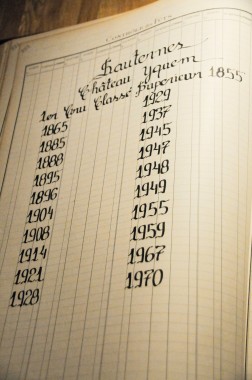 Sauternes
Château Yquem
1er Cru Classé Supérieur 1855
1865
1885
1888
1895
1896
1904
1908
1914
1921
1928
1929
1937
1945
1947
1948
1949
1955
1959
1967
1970